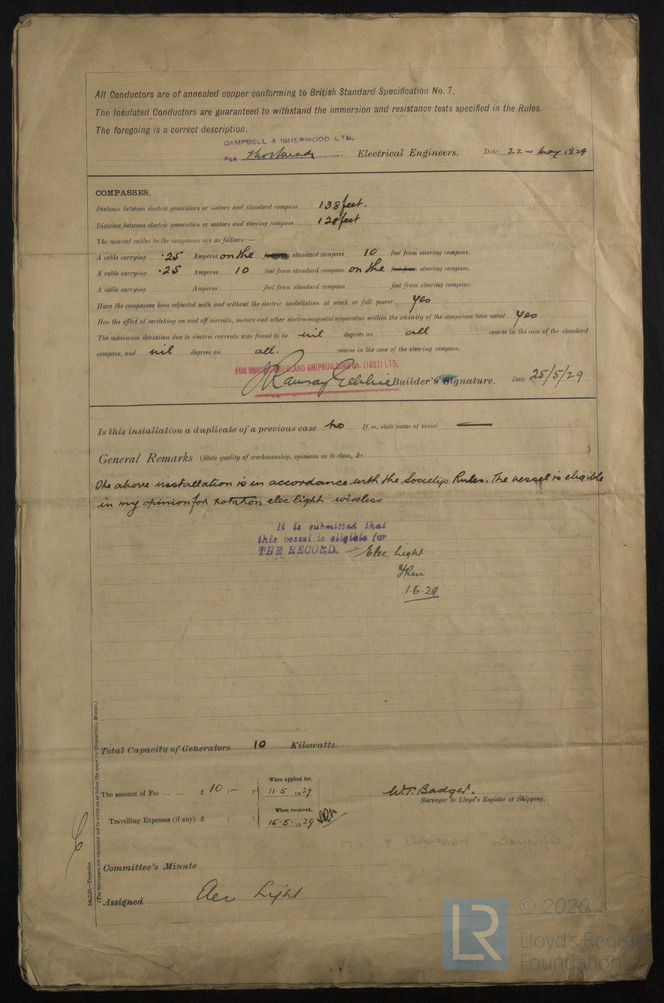 All Conductors are of annealed copper conforming to British Standard Specification No. 7.
The Insulated Conductors are guaranteed to withstand the immersion and resistance tests specified in the Rules.
The foregoing is a correct description.
CAMPBELL & ISHERWOOD LTD.
PER Electrical Engineers. Date 22nd May 1929
COMPASSES.
Distance between electric generators or motors and standard compass 138 feet.
Distance between electric generators or motors and steering compass 128 feet
The nearest cables to the compasses are as follows:—
A cable carrying .25 Amperes on the standard compass 10 feet from steering compass.
A cable carrying .25 Amperes 10 feet from standard compass on the steering compass.
A cable carrying Amperes feet from standard compass feet from steering compass.
Have the compasses been adjusted with and without the electric installation at work at full power yes
Has the effect of switching on and off circuits, motors and other electro-magnetic apparatus within the vicinity of the compasses been noted yes
The maximum deviation due to electric currents was found to be nil degrees on all course in the case of the standard
compass, and nil degrees on all. course in the case of the steering compass.
FOR NORTHUMBERLAND SHIPBUILDING Co. (1927) LTD.
J Ramsay Gebbie Builder's Signature. Date 25/5/29
Is this installation a duplicate of a previous case No If so, state name of vessel —
General Remarks (State quality of workmanship, opinions as to class, &c.
The above installation is in accordance with the Societys Rules. The vessel is eligible
in my opinion for notation elec light wireless
It is submitted that
this vessel is eligible for
THE RECORD. Elec Light
1.6.29
Total Capacity of Generators 10 Kilowatts.
The amount of Fee ... ... £ 10 : - : When applied for, 11.5.1929
Travelling Expenses (if any) £ : : When received, 15.5.1929
W.T. Badger.
Surveyor to Lloyd's Register of Shipping.
Committee's Minute
Assigned Elec Light
© 2020
LR Lloyd's Register
Foundation